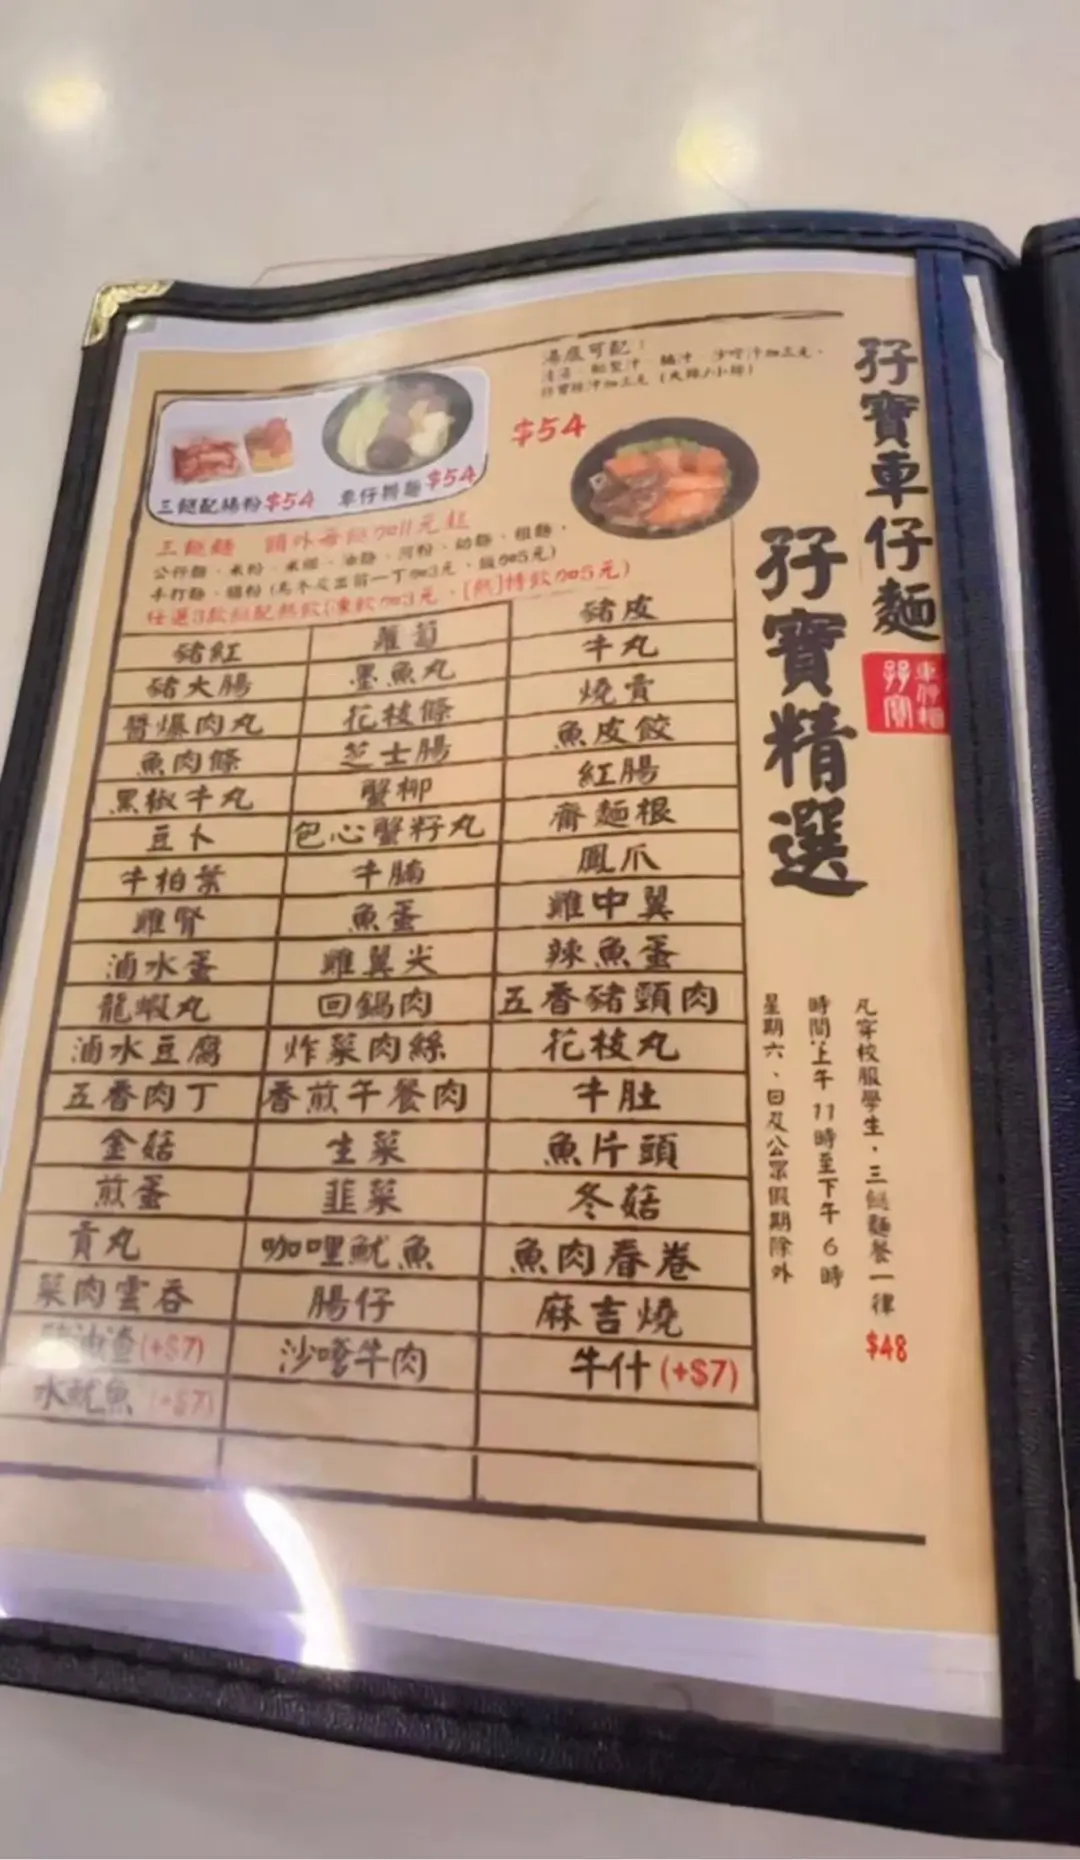 孖寶車仔麵
孖寶
車仔麵
孖寶精選
湯底可配：
$54
三餸配腸粉$54
車仔撈麵$54
三餸麵 額外每餸加11元起
公仔麵、米粉、米線、油麵、河粉、幼麵、粗麵、
任選3款餸配熱飲(凍飲加3元、[熱]特飲加5元)
豬紅 蘿蔔 豬皮
豬大腸 墨魚丸 牛丸
醬爆肉丸 花枝條 燒賣
魚肉條 芝士腸 魚皮餃
黑椒牛丸 蟹柳 紅腸
豆卜 包心蟹籽丸 齋麵根
牛柏葉 牛腩 鳳爪
雞腎 魚蛋 雞中翼
滷水蛋 雞翼尖 辣魚蛋
龍蝦丸 回鍋肉 五香豬頸肉
滷水豆腐 炸菜肉絲 花枝丸
五香肉丁 香煎午餐肉 牛肚
金菇 生菜 魚片頭
煎蛋 韮菜 冬菇
貢丸 咖哩魷魚 魚肉春卷
菜肉雲吞 腸仔 麻吉燒
油渣(+$7) 沙嗲牛肉 牛什(+$7)
水魷魚(+$7)
凡穿校服學生，三餸麵餐一律
$48
時間：上午11時至下午6時
星期六、日及公眾假期除外